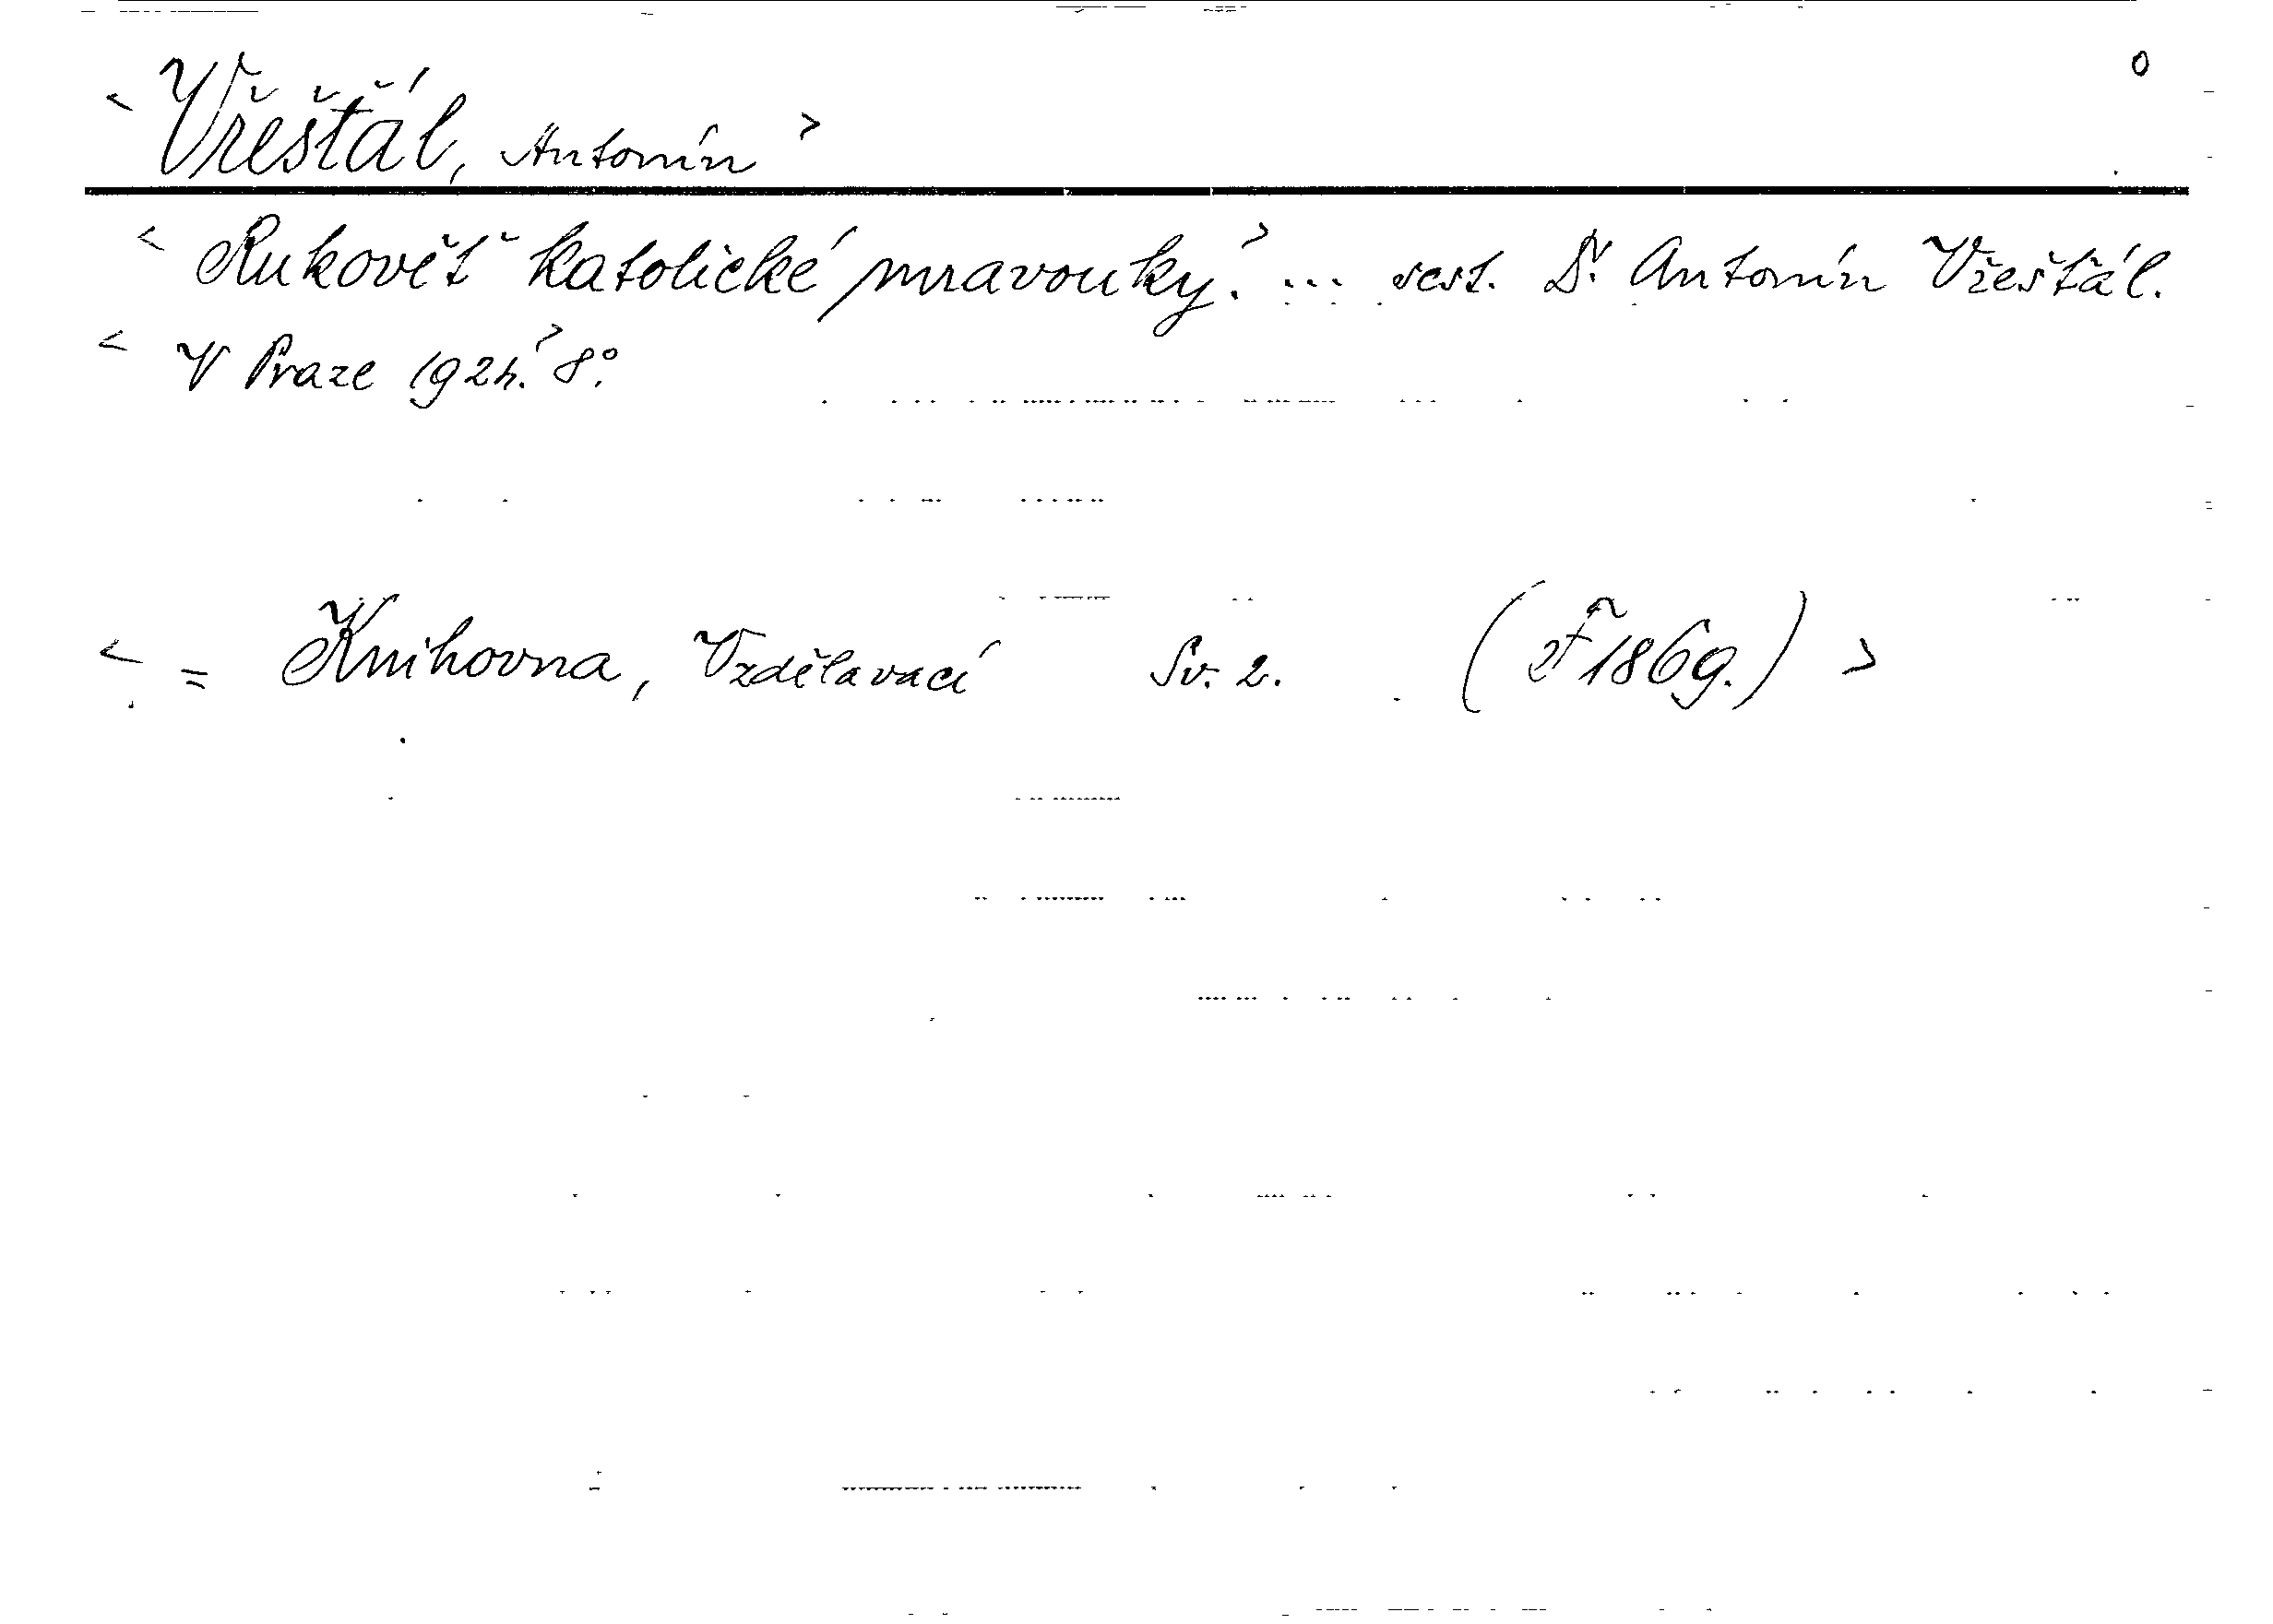 0
< Vřešťál, Antonín >
< Rukověť katolické mravouky.> ... sest. Dr. Antonín Vřešťál.
< V Praze 1924.> 8°.
< = Knihovna, Vzdělavací Sv. 2. ( 1869.) >